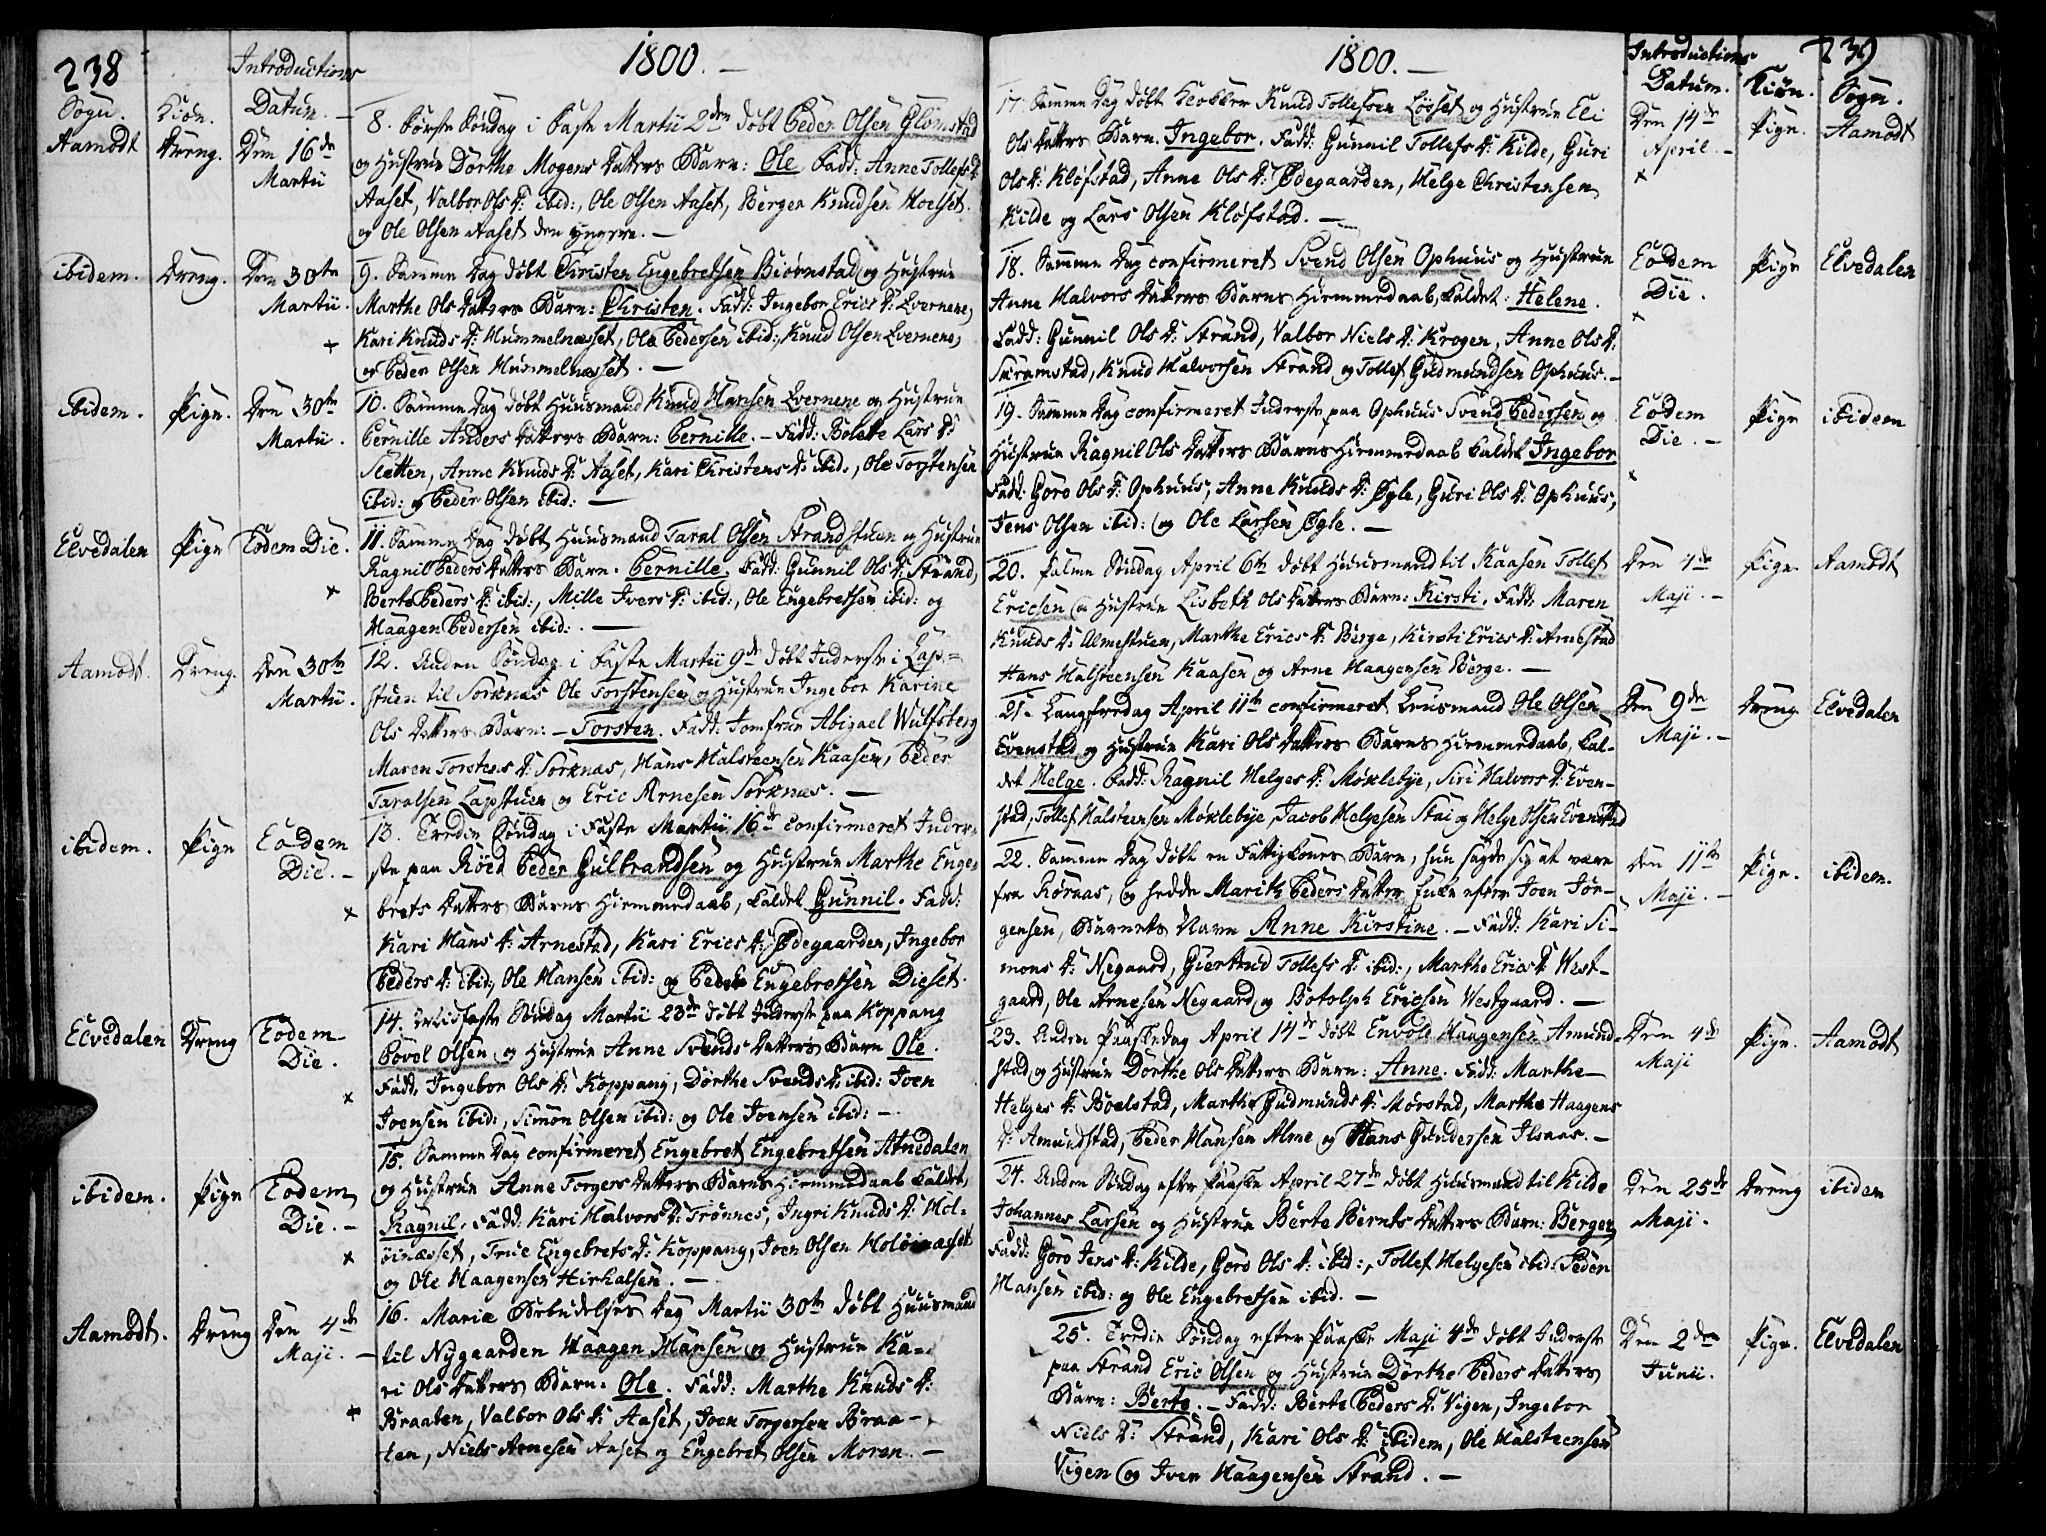 238
Introductions
1800. —
Sogn.
Kiön.
Datum. —
Aamodt
Dreng.
Den 16de
Martii
8. Første Søndag i Faste Martii 2den døbt Peder Olsen Glomstad
og Hustrue Dorthe Mogens Datters Barn: Ole. Fadd: Anne Tollefs D:
Aaset, Valbor Ols D: ibid:, Ole Olsen Aaset, Berger Knudsen Hoelset
og Ole Olsen Aaset den yngere. —
ibidem.
Dreng.
Den 30te
Martii.
9. Samme Dag døbt Christen Engebretsen Biørnstad og Hustrue
Marthe Ols Datters Barn: Christen. Fadd: Ingebor Erics D: Evernene,
Kari Knuds D: Hummelnæsset, Ole Pedersen ibid:, Knud Olsen Evernene,
og Peder Olsen Hummelnæsset. —
ibidem.
Pige.
Den 30te
Martii.
10. Samme Dag døbt Huusmand Knud Hansen Evernene og Hustrue
Pernille Anders Datters Barn: Pernille. — Fadd: Bolette Lars D:
Sletten, Anne Knuds D: Aaset, Kari Christens D: ibid:, Ole Torstensen
ibid: og Peder Olsen ibid: —
Elvedalen
Pige
Eodem Die.
11. Samme Dag døbt Huusmand Taral Olsen Strandstuen og Hustrue
Ragnil Peders Datters Barn. Pernille. Fadd: Gunnil Ols D: Strand,
Berte Peders D: ibid:, Mille Ivers D: ibid:, Ole Engebretsen ibid: og
Haagen Pedersen ibid: —
Aamodt.
Dreng.
Den 30te
Martii.
12. Anden Søndag i Faste Martii 9de døbt Inderste i Lap-
stuen til Sorknæs Ole Torstensen og Hustrue Ingebor Karine
Ols Datters Barn: — Torsten. Fadd: Jomfrue Abigael Wulfsberg
Maren Torstens D: Sorknæs, Hans Halsteensen Kaasen, Peder
Taralsen Lapstuen og Eric Arnesen Sorknæs. —
ibidem.
Pige
Eodem
Die. —
13. Tredie Søndag i Faste Martii 16de confirmeret Inder-
ste paa Röed Peder Gulbrandsen og Hustrue Marthe Enge-
brets Datters Barns Hiemmedaab, kaldet Gunnil. Fadd:
Kari Hans D: Arnestad, Kari Erics D: Ødegaarden, Ingebor
Peders D: ibid:, Ole Hansen ibid: og Peder Engebretsen Dieset.
Elvedalen
Dreng
Eodem
Die.
14. Midfaste Søndag Martii 23de døbt Inderste paa Koppang
Povel Olsen og Hustrue Anne Svends Datters Barn Ole.
Fadd. Ingebor Ols D: Koppang, Dörthe Svends D: ibid: Joen
Joensen ibid:, Simon Olsen ibid: og Ole Joensen ibid: —
ibidem.
Pige
Eodem
Die. —
15. Samme Dag confirmeret Engebret Engebretsen Atnedalen
og Hustrue Anne Torgers Datters Barns Hiemmedaab kaldet
Ragnil. Fadd: Kari Halvors D: Trønnes, Ingri Knuds D: Hol-
öinæsset, True Engebrets D: Koppang, Joen Olsen Holöinæsset
og Ole Haagensen Hirkalsen. —
Aamodt.
Dreng
Den 4de
Maji. —
16. Mariæ Bebudelses Dag Martii 30te døbt Huusmand
til Nygaarden Haagen Hansen og Hustrue Ka-
ri Ols Datters Barn. Ole. Fadd: Marthe Knuds D:
Braaten, Valbor Ols D: Aaset, Joen Torgersen Braa-
ten, Niels Arnesen Aaset og Engebret Olsen Moren. —
1800. —
Introductions
Datum.
Kiön.
239
Sogn.
17. Samme Dag døbt Klokker Knud Tollefsen Löset og Hustrue Eli
Ols Datters Barn. Ingebor. Fadd: Gunnil Tollefs D: Kilde, Guri
Ols D: Kløfstad, Anne Ols D: Ødegaarden, Helge Christensen
Kilde og Lars Olsen Kløfstad. —
Den 14de
April. —
Pige.
Aamodt
18. Samme Dag confirmeret Svend Olsen Ophuus og Hustrue
Anne Halvors Datters Barns Hiemmedaab, kaldet: Helene.
Fadd: Gunnil Ols D: Strand, Valbor Niels D: Krogen, Anne Ols D:
Skramstad, Knud Halvorsen Strand og Tollef Gudmundsen Ophuus. —
Eodem
Die.
Pige
Elvedalen
19. Samme Dag confirmeret Inderste paa Ophuus Svend Pedersen og
Hustrue Ragnil Ols Datters Barns Hiemmedaab kaldet Ingebor
Fadd. Goro Ols D: Ophuus, Anne Knuds D: Øgle, Guri Ols D: Ophuus,
Jens Olsen ibid: og Ole Larsen Øgle. —
Eodem
Die. —
Pige
ibidem
20. Palme Søndag April 6te døbt Huusmand til Kaasen Tollef
Ericsen og Hustrue Lisbeth Ols Datters Barn: Kirsti. Fadd: Maren
Knuds D: Almestuen, Marthe Erics D: Berge, Kirsti Erics D: Arnestad
Hans Halsteensen Kaasen og Arne Haagensen Berge. —
Den 4de
Maji. —
Pige.
Aamodt
21. Langfredag April 11te confirmeret Lensmand Ole Olsen
Evenstad og Hustrue Kari Ols Datters Barns Hiemmedaab, kal-
det Helge. Fadd: Ragnil Helges D: Møklebye, Siri Halvors D: Even-
stad, Tollef Halsteensen Møklebye, Jacob Helgesen Stai og Helge Olsen Evenstad
Den 9de
Maji. —
Dreng
Elvedalen
22. Samme Dag døbt en Fattig Kones Barn, hun sagde sig at være
fra Røraas, og hedde Marith Peders Datter Enke efter Joen Jör-
gensen, Barnets Navn Anne Kirstine. — Fadd: Kari Si-
mons D: Negaard, Giertrud Tollefs D: ibid:, Marthe Erics D: West-
gaard, Ole Arnesen Negaard, og Botolph Ericsen Westgaard. —
Den 11te
Maji. —
Pige.
ibidem.
23. Anden Paaskedag April 14de døbt Envold Haagensen Amund-
stad, og Hustrue Dorthe Ols Datters Barn: Anne. Fadd: Marthe
Helges D: Boelstad, Marthe Gudmunds D: Mørstad, Marthe Haagens
D: Amundstad, Peder Hansen Alme, og Hans Gundersen Ilsaas. —
Den 4de
Maji
Pige.
Aamodt
24. Anden Søndag efter Paaske April 27de døbt Huusmand til Kilde
Johannes Larsen og Hustrue Berte Bernts Datters Barn: Berger
Fadd: Goro Jens D: Kilde, Goro Ols D: ibid:, Tollef Helgesen ibid: Peder
Hansen ibid: og Ole Engebretsen ibid. —
Den 25de
Maji.
Dreng
ibidem
25. Tredie Søndag efter Paaske Maji 4de døbt Inderste
paa Strand Eric Olsen og Hustrue Dorthe Peders Datters
Barn: Berte. — Fadd: Berte Peders D: Vigen, Ingebor
Niels D: Strand, Kari Ols D: ibidem, Ole Halsteensen
Vigen og Iver Haagensen Strand. —
Den 2den
Junii.
Pige.
Elvedalen